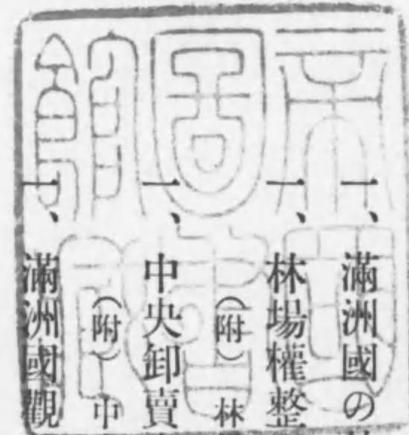 帝國
圖書
館藏
一、滿洲國の
一、林場權整
(附)林
一、中央卸賣
(附)中
一、滿洲國觀